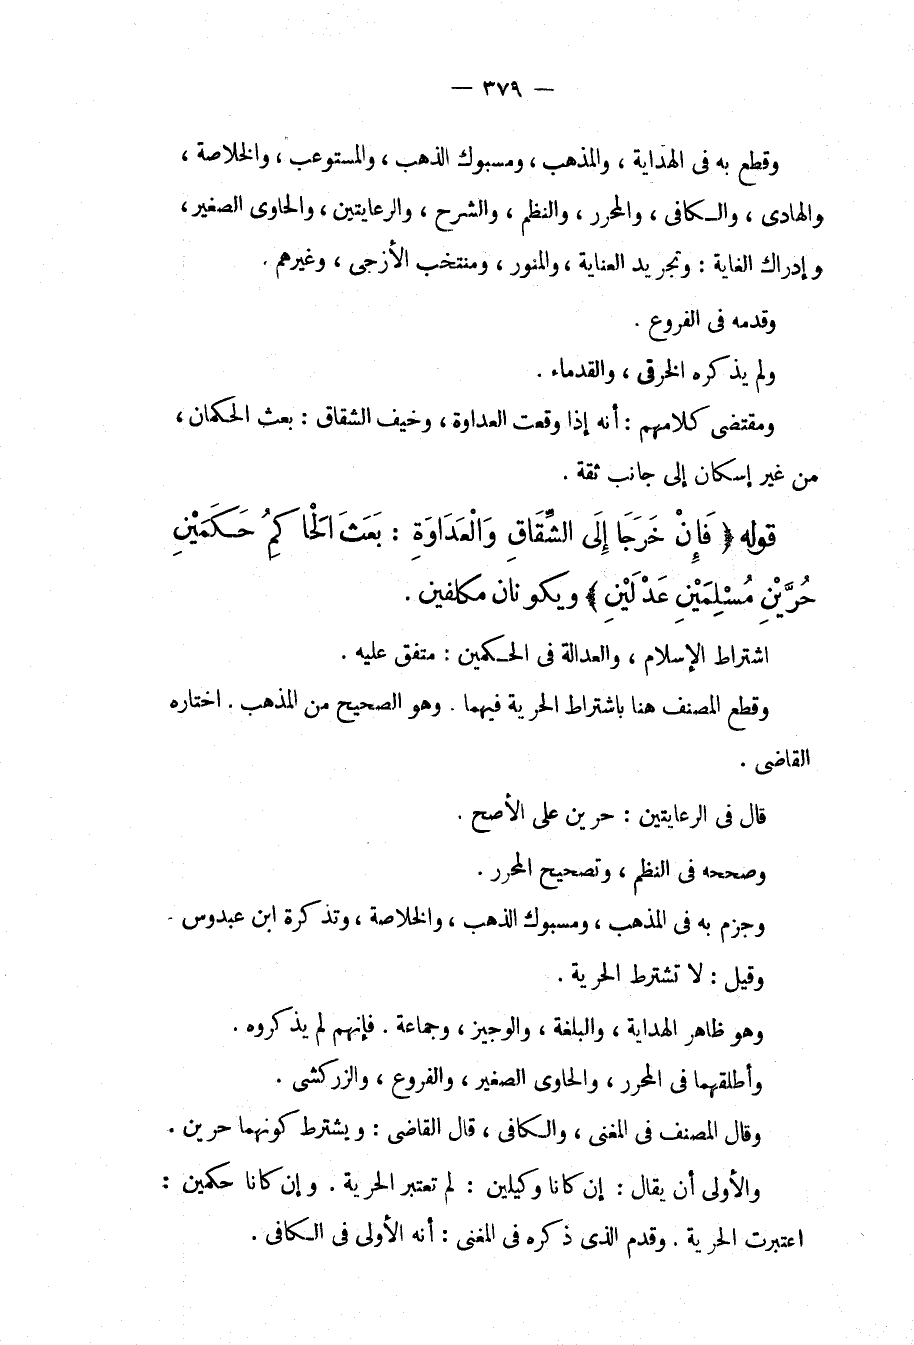 — ٣٧٩ —
وقطع به فى الهداية ، والمذهب ، ومسبوك الذهب ، والمستوعب ، والخلاصة ،
والهادى ، والـكافى ، والمحرر ، والنظم ، والشرح ، والرعايتين ، والحاوى الصغير ،
وإدراك الغاية : وتجريد العناية ، والمنور ، ومنتخب الأزجى ، وغيرهم .
وقدمه فى الفروع .
ولم يذكره الخرقى ، والقدماء .
ومقتضى كلامهم : أنه إذا وقعت العداوة ، وخيف الشقاق : بعث الحكمان ،
من غير إسكان إلى جانب ثقة .
قوله ﴿ فَإِنْ خَرَجَا إِلَى الشِّقَاقِ وَالْعَدَاوَةِ : بَعَثَ الْحَاكِمُ حَـكَمَيْنِ
حُرَّيْنِ مُسْلِمَيْنِ عَدْلَيْنِ ﴾ ويكونان مكلفين .
اشتراط الإسلام ، والعدالة فى الحـكمين : متفق عليه .
وقطع المصنف هنا باشتراط الحرية فيهما . وهو الصحيح من المذهب . اختاره
القاضى .
قال فى الرعايتين : حرين على الأصح .
وصححه فى النظم ، وتصحيح المحرر .
وجزم به فى المذهب ، ومسبوك الذهب ، والخلاصة ، وتذكرة ابن عبدوس .
وقيل : لا تشترط الحرية .
وهو ظاهر الهداية ، والبلغة ، والوجيز ، وجماعة . فإنهم لم يذكروه .
وأطلقهما فى المحرر ، والحاوى الصغير ، والفروع ، والزركشى .
وقال المصنف فى المغنى ، والـكافى ، قال القاضى : ويشترط كونهما حرين .
والأولى أن يقال : إن كانا وكيلين : لم تعتبر الحرية . وإن كانا حكمين :
اعتبرت الحرية . وقدم الذى ذكره فى المغنى : أنه الأولى فى الـكافى .